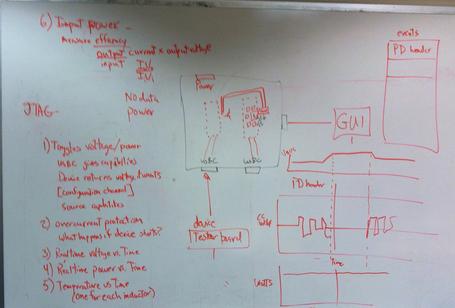 6) Input power -
Measure efficiency
output current x output voltage
input
IV₀
IV₁
JTAG -
No data
power
1) Toggles voltage/power
USBC gives capabilities
Device returns voltage/
[configuration channel]
source capabilities
2) overcurrent protection
what happens if device shorts?
3) Realtime voltage vs. Time
4) Realtime power vs. Time
5) Temperature vs Time
(one for each inductor)
Power
USBC
USBC
device
Tester board
GUI
events
PD header
PD header
Time
VOLTS